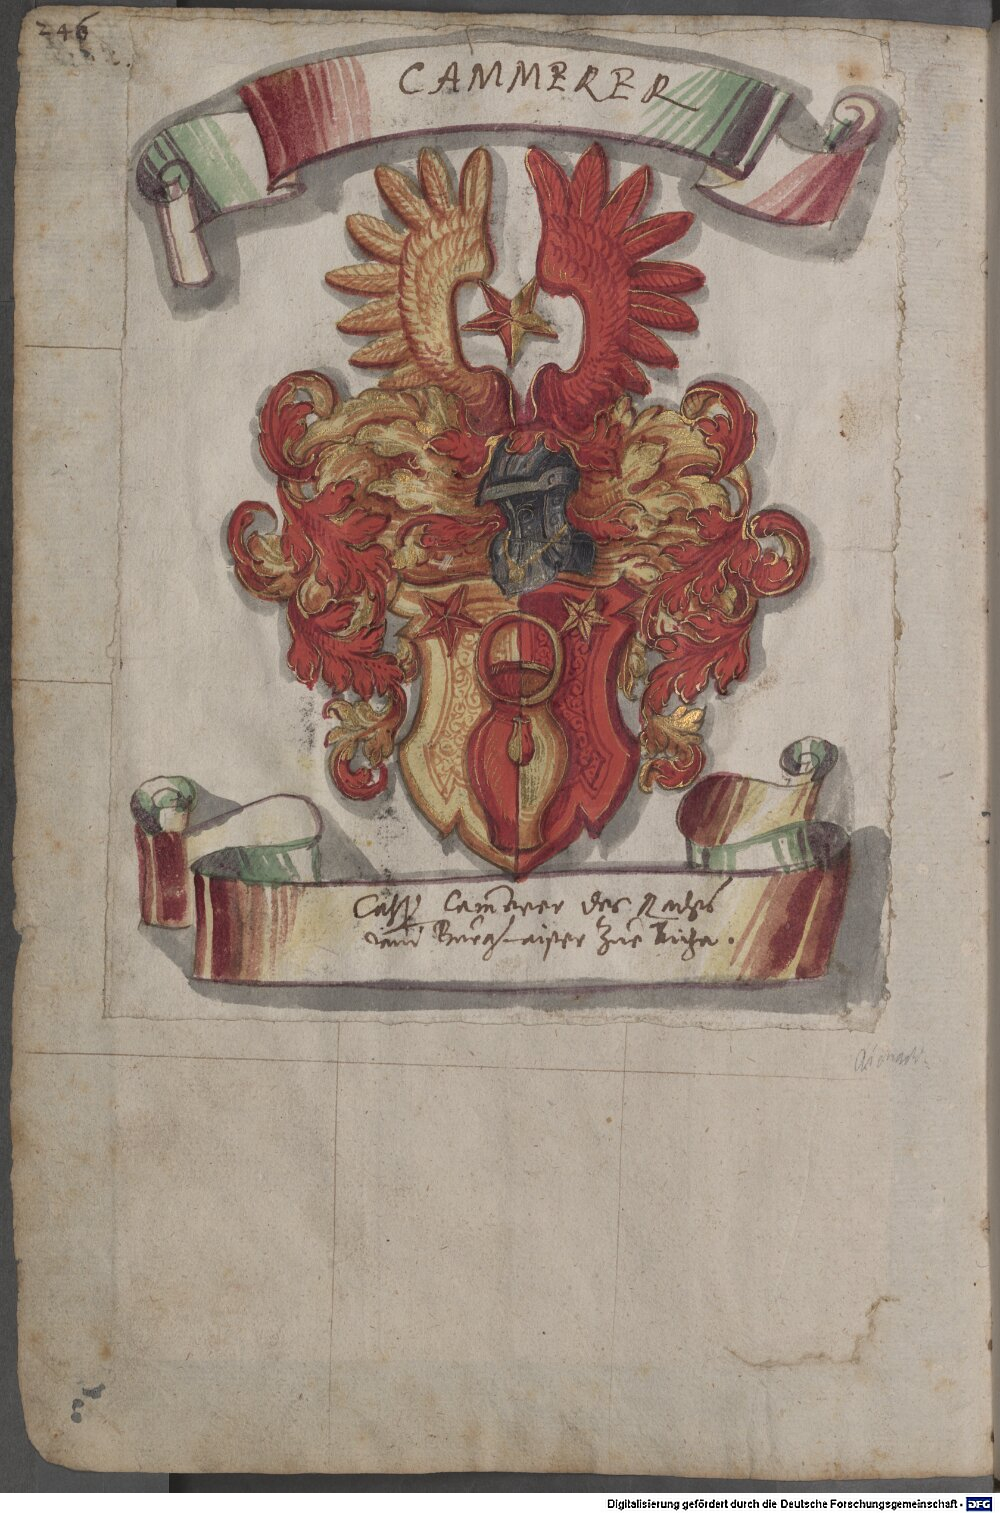 246
CAMMERER
Casp Camerer des Raths
und Burgmaister zue Aicha.
Aichach.
Digitalisierung gefördert durch die Deutsche Forschungsgemeinschaft - DFG